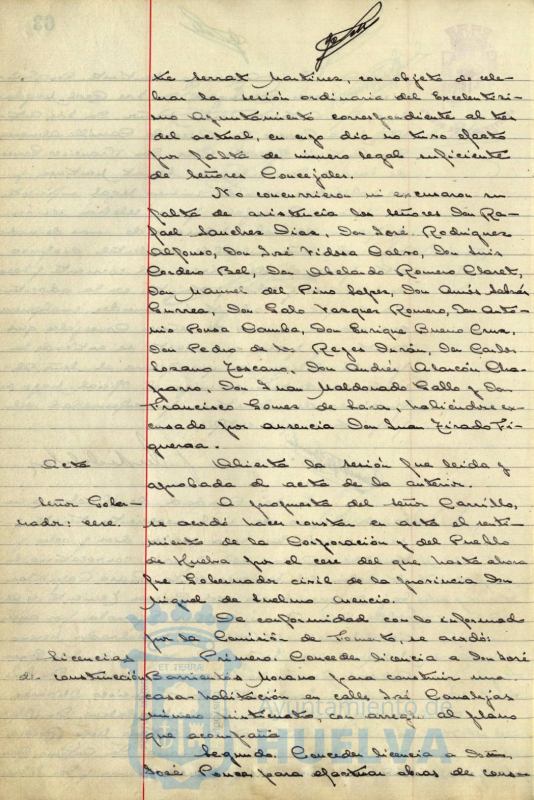 té Serrat Martínez, con objeto de cele-
brar la sesión ordinaria del Excelentísi-
mo Ayuntamiento correspondiente al tres
del actual, en cuyo día no tuvo efecto
por falta de número legal suficiente
de señores Concejales.
No concurrieron ni excusaron su
falta de asistencia los señores Don Ra-
fael Sanchez Diaz, Don José Rodriguez
Alfonso, Don José Vidosa Calvo, Don Luis
Cordero Bel, Don Abelardo Romero Claret,
Don Manuel del Pino Lopez, Don Amós Sabrás
Gurrea, Don Galo Vazquez Romero, Don Anto-
nio Pousa Camba, Don Enrique Bueno Cruz,
Don Pedro de los Reyes Durán, Don Carlos
Lozano Toscano, Don Andrés Alarcón Cha-
parro, Don Juan Maldonado Gallo y Don
Francisco Gomez de Lara, habiéndose ex-
cusado por ausencia Don Juan Tirado Fi-
gueroa.
Acta
Abierta la sesión fue leida y
aprobada el acta de la anterior.
Señor Gober-
nador: cese.
A propuesta del señor Carrillo,
se acordó hacer constar en acta el senti-
miento de la Corporación y del Pueblo
de Huelva por el cese del que hasta ahora
fue Gobernador civil de la provincia Don
Miguel de Asencio.
De conformidad con lo informado
por la Comisión de Fomento, se acordó:
Licencias
de construcción
Primero. Conceder licencia a Don José
Barrientos Morano para construir una
casa-habitación en calle José Canalejas
número, con arreglo al plano
que acompaña
Segundo. Conceder licencia a
José Ponce para efectuar obras de cons-
ET TERRA
Ayuntamiento de
HUELVA
63